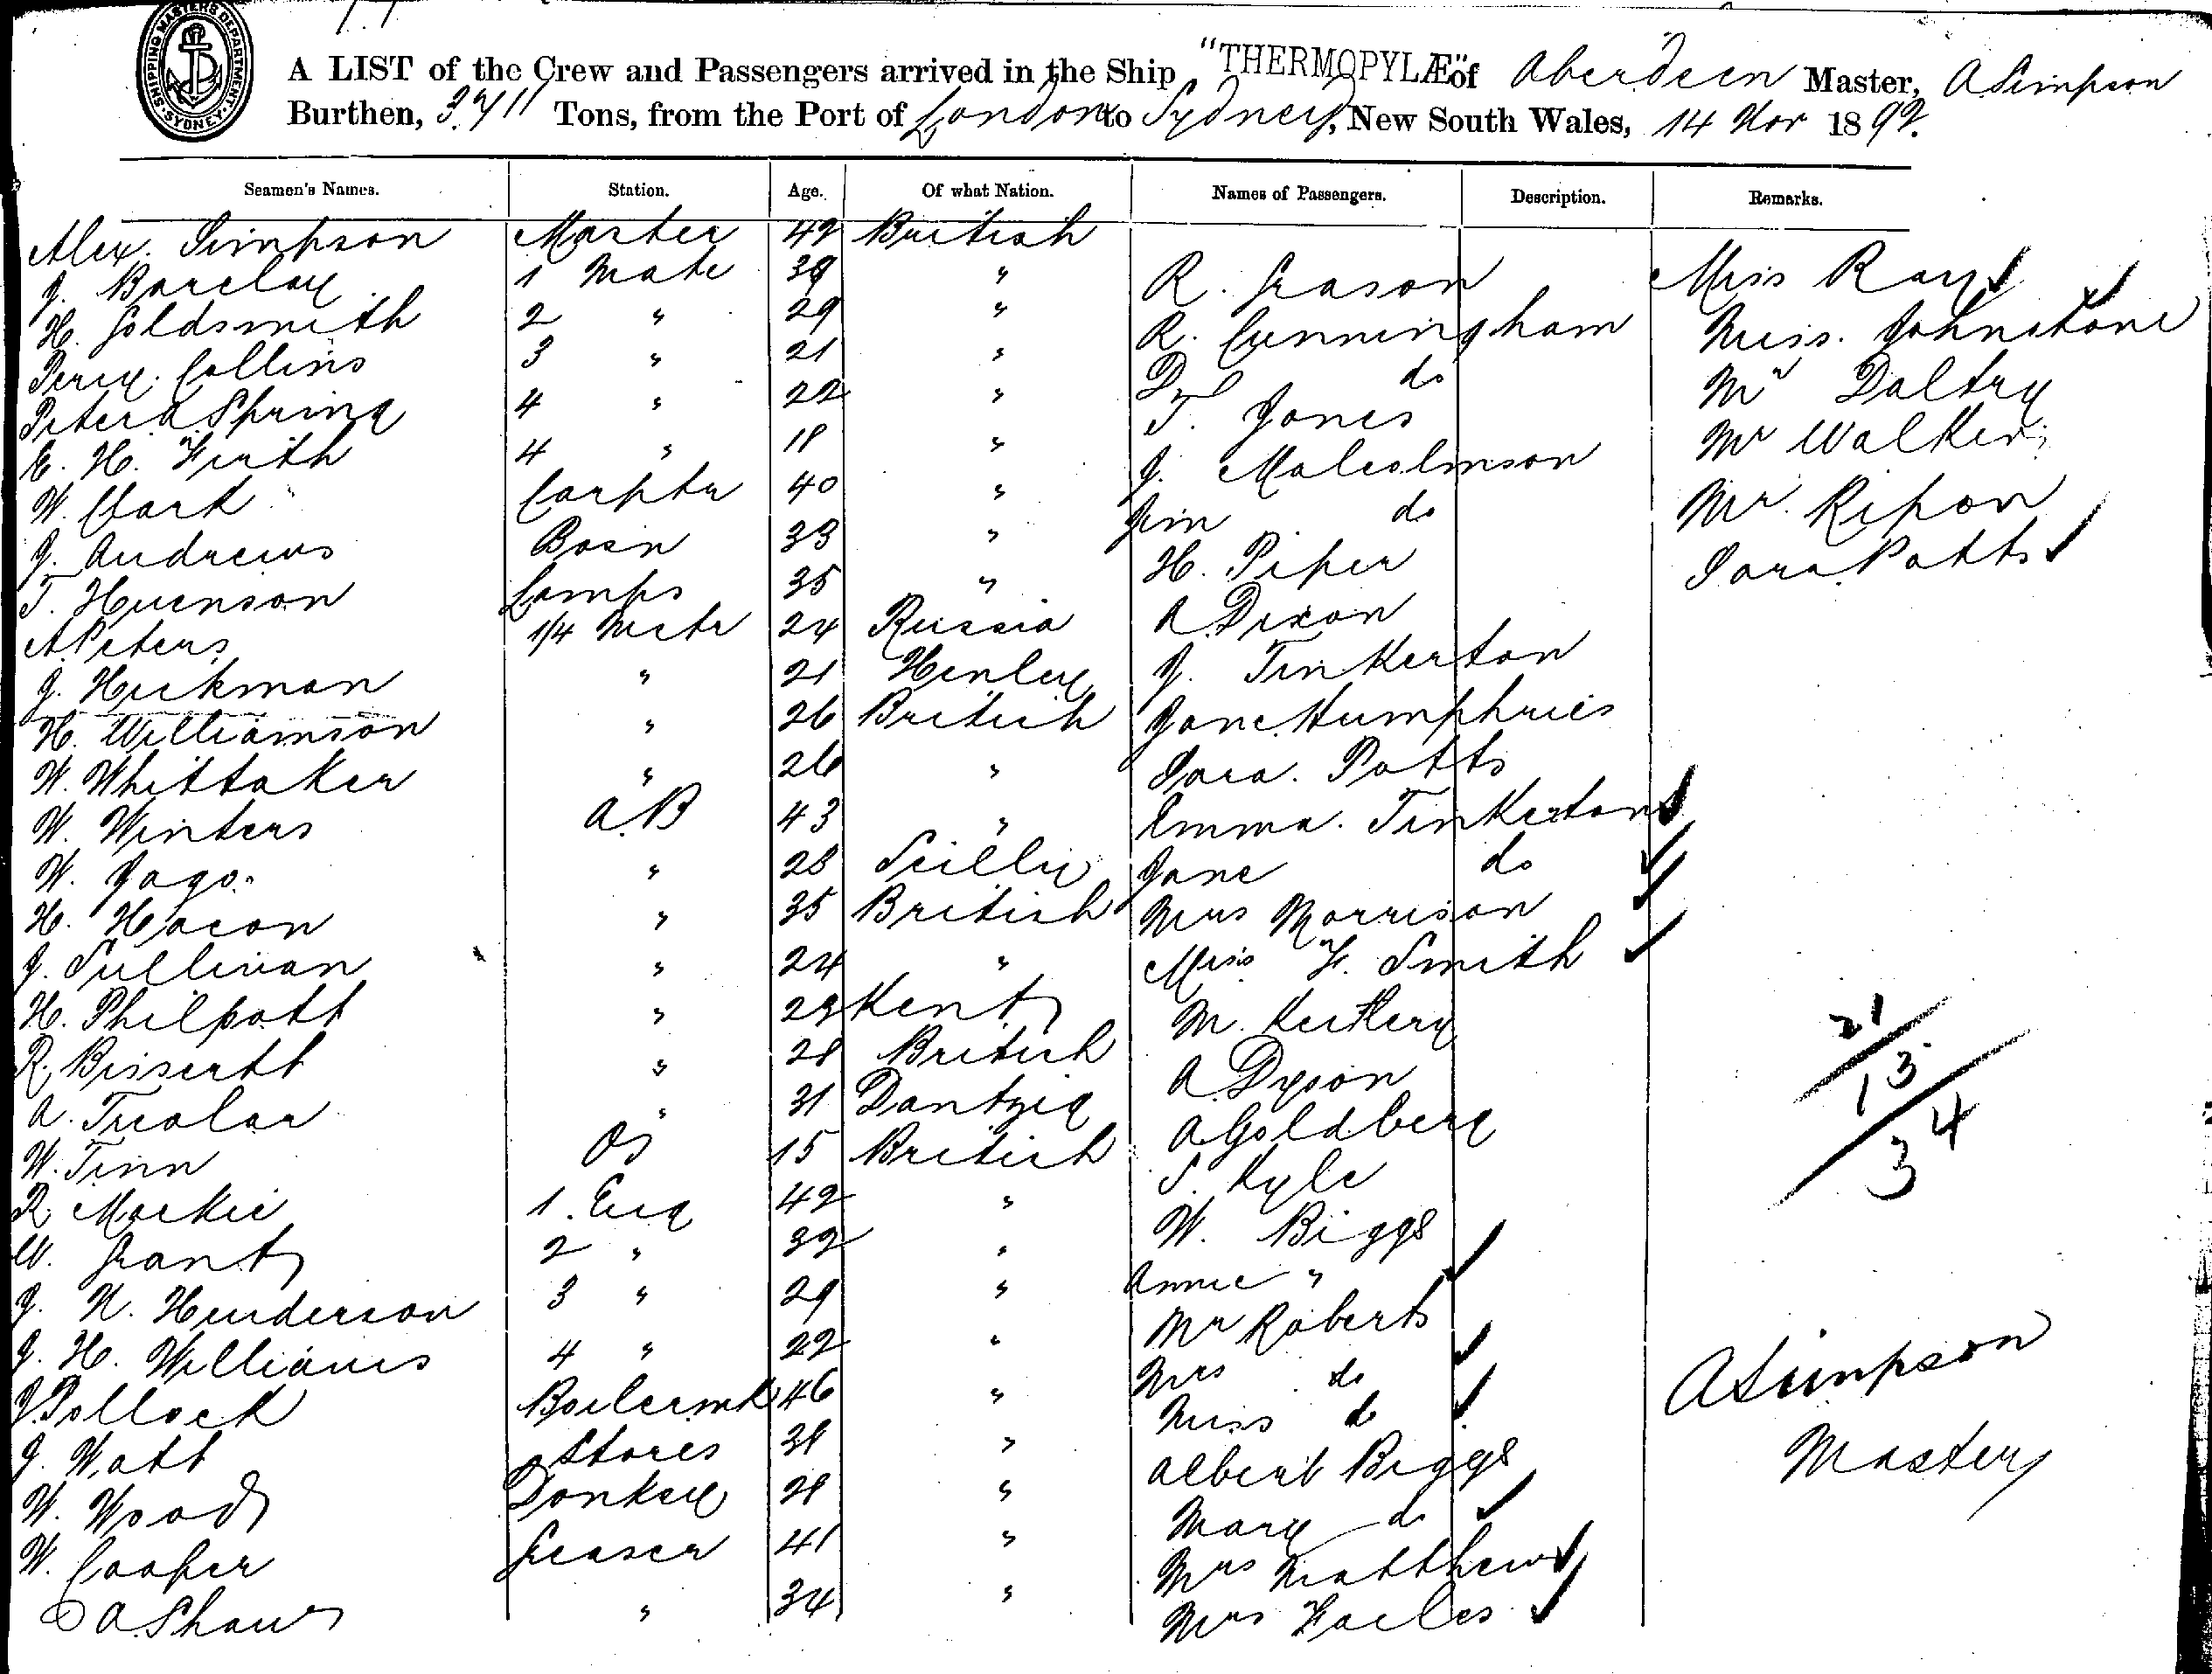 SHIPPING MASTERS DEPARTMENT. SYDNEY.
A LIST of the Crew and Passengers arrived in the Ship "THERMOPYLÆ" of Aberdeen Master, A Simpson
Burthen, 3711 Tons, from the Port of London to Sydney, New South Wales, 14 Nov 1892.
Seamen's Names. Station. Age. Of what Nation. Names of Passengers. Description. Remarks.
Alex. Simpson Master 42 British
J. Barclay 1 Mate 39 " R. Grason Miss Ray
H. Goldsmith 2 " 29 " R. Cunningham Miss. Johnstone
Percy Collins 3 " 21 " D do Mr Daltry
Peter A Spring 4 " 22 " T. Jones Mr Walker
E. H. Firth 4 " 18 " J. Malcolmson Mr. Ripon
W. Clark Carpter 40 " Jim do Sara Potts
J. Andrews Bosn 33 " H. Piper
T. Huenson Lamps 35 " A Dixon
A Peters 1/4 Mstr 24 Russia J. Tinkerton
J. Hickman " 21 Henley Jane Humphries
H. Williamson " 26 British Sara. Potts
W. Whittaker " 26 " Emma. Tinkerton
W. Winters A.B 43 " Jane do
W. Jago. " 28 Scilly Mrs Morrison
H. Hacon " 35 British Miss F. Smith
J. Sullivan " 24 "
H. Philpott " 29 Kent A Dyson
R. Bissertt " 28 British A Goldberg
A. Treolar " 31 Dantzig S. Kyle
W. Tinn OS 15 British W. Biggs
R Mackie 1. Eng 42 " Annie "
W. Grant 2 " 32 " Mr Roberts
J. N. Henderson 3 " 29 " Mrs do
J. H. Williams 4 " 22 " Miss do
J. Pollock Boilermk 46 " Albert Biggs
J. Watt Stores 38 " Mary do
W. Wood Donkey 28 " Mrs Matthews
W. Cooper Greaser 41 " Mrs
A Shaw " 34 "
21
13
34
A Simpson
Master